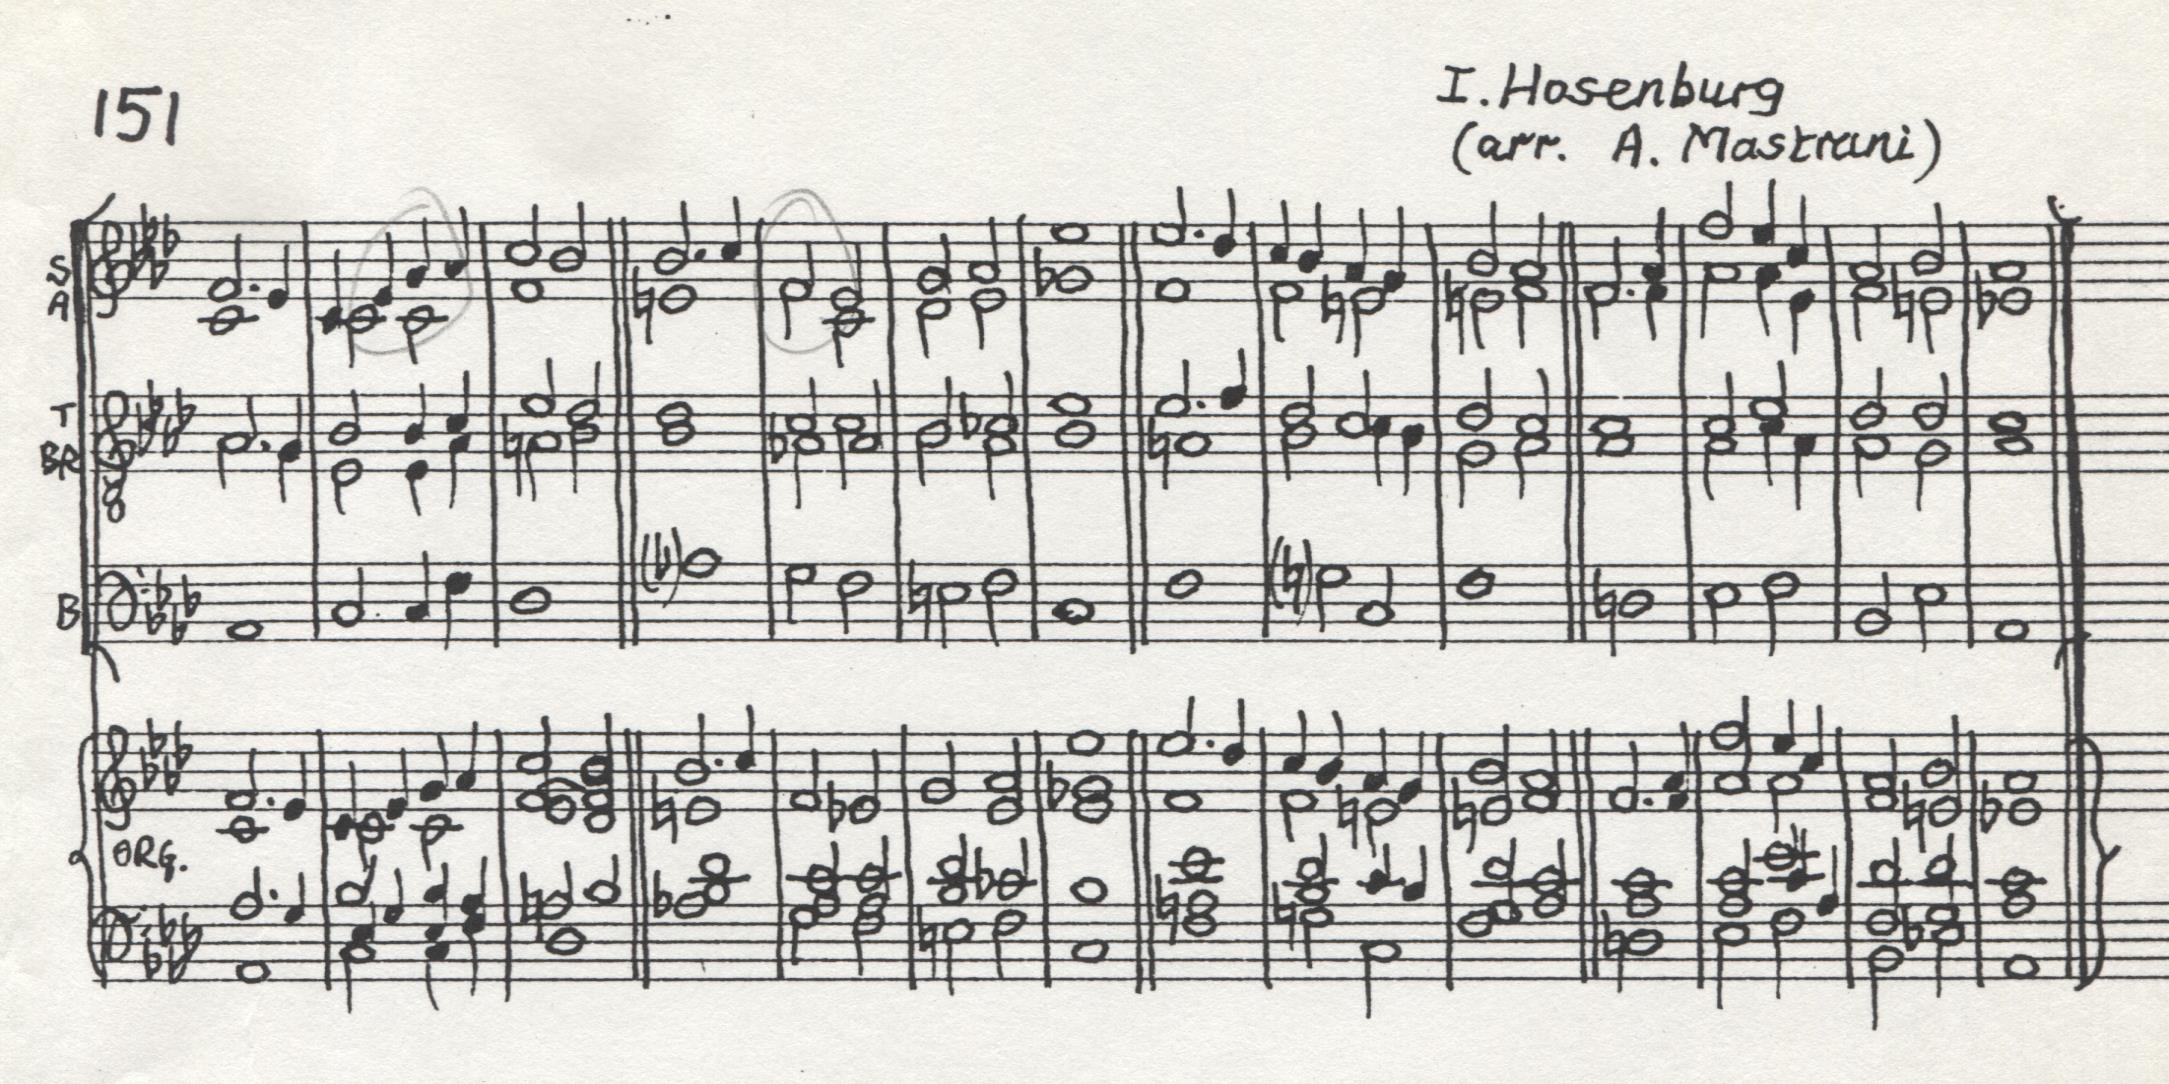 151
I. Hosenburg
(arr. A. Mastrani)
S
A
T
BR
8
B
ORG.